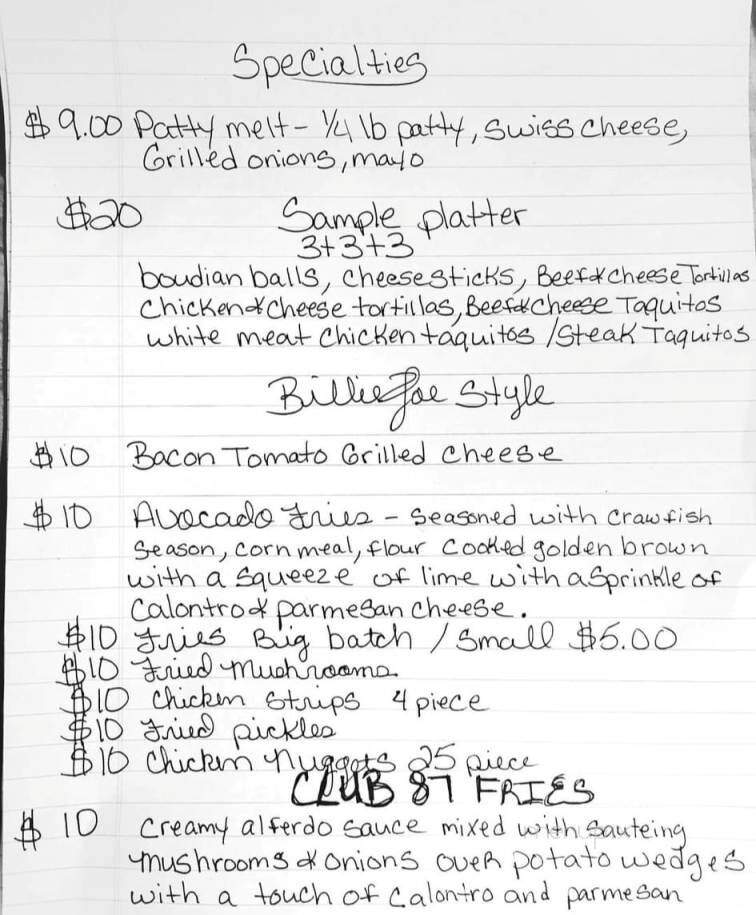 Specialties
$9.00 Patty melt - 1/4 lb patty, swiss cheese,
Grilled onions, mayo
$20 Sample platter
3+3+3
boudian balls, cheese sticks, Beef & cheese Tortillas
Chicken & cheese tortillas, Beef & cheese Taquitos
white meat chicken taquitos / Steak Taquitos
Billie Joe Style
$10 Bacon Tomato Grilled cheese
$10 Avocado Fries - seasoned with crawfish
season, corn meal, flour cooked golden brown
with a squeeze of lime with a sprinkle of
Calontro & parmesan cheese.
$10 Fries Big batch / small $5.00
$10 Fried Mushrooms
$10 Chicken Strips 4 piece
$10 Fried pickles
$10 Chicken nuggets 25 piece
CLUB 87 FRIES
$10 Creamy alferdo sauce mixed with sauteing
mushrooms & onions over potato wedges
with a touch of Calontro and parmesan